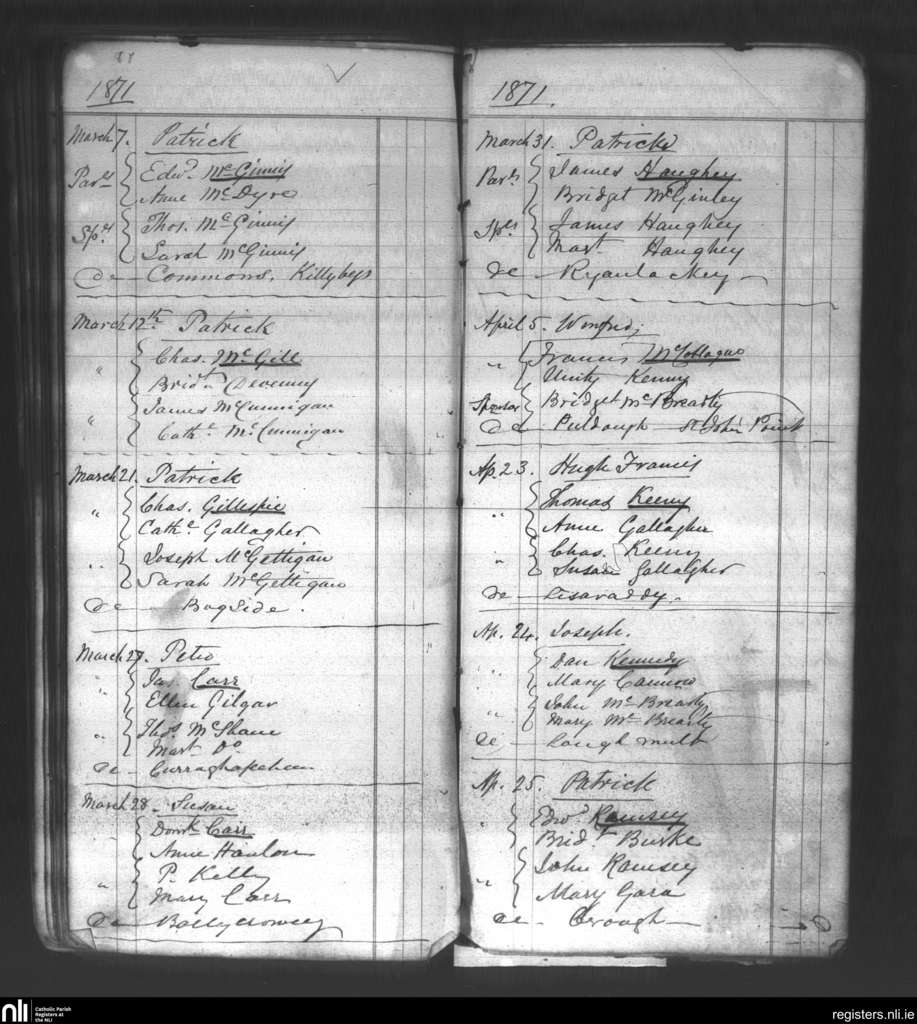 1871
March 7. Patrick
Par.ts Edw.d McGinnis
Anne McDyre
Sp.rs Thos. McGinnis
Sarah McGinnis
De Commons, Killybegs
March 12th Patrick
" Chas. McGill
Brid.t Devenny
" James McCunnigan
Cath.e McCunnigan
March 21. Patrick
" Chas. Gillespie
Cath.e Gallagher
" Joseph McGettigan
Sarah McGettigan
De Bogside.
March 27. Peter
" Jas. Carr
Ellen Gilgar
" Thos. McShane
Mart Do
de
March 28. Susan
Dom.k Carr
Anne Hanlon
" P. Kelly
Mary Carr
De
1871.
March 31. Patrick
Par.ts James Haughey
Bridget McGinley
Sp.rs James Haughey
Mart Haughey
de
April 5. Winfred;
" Francis McCollague
Unity Kenny
Sponsor Bridget McBrearty
De St John Point
Ap. 23. Hugh Francis
" Thomas Keeny
Anne Gallagher
" Chas. Keeny
Susan Gallagher
De
Ap. 24. Joseph.
" Dan Kennedy
Mary
" John McBrearty
Mary McBrearty
de
Ap. 25. Patrick
" Edw.d Ramsey
Brid.t Burke
" John Ramsey
Mary Gara
de Crough
nli Catholic Parish
Registers at
the NLI
registers.nli.ie